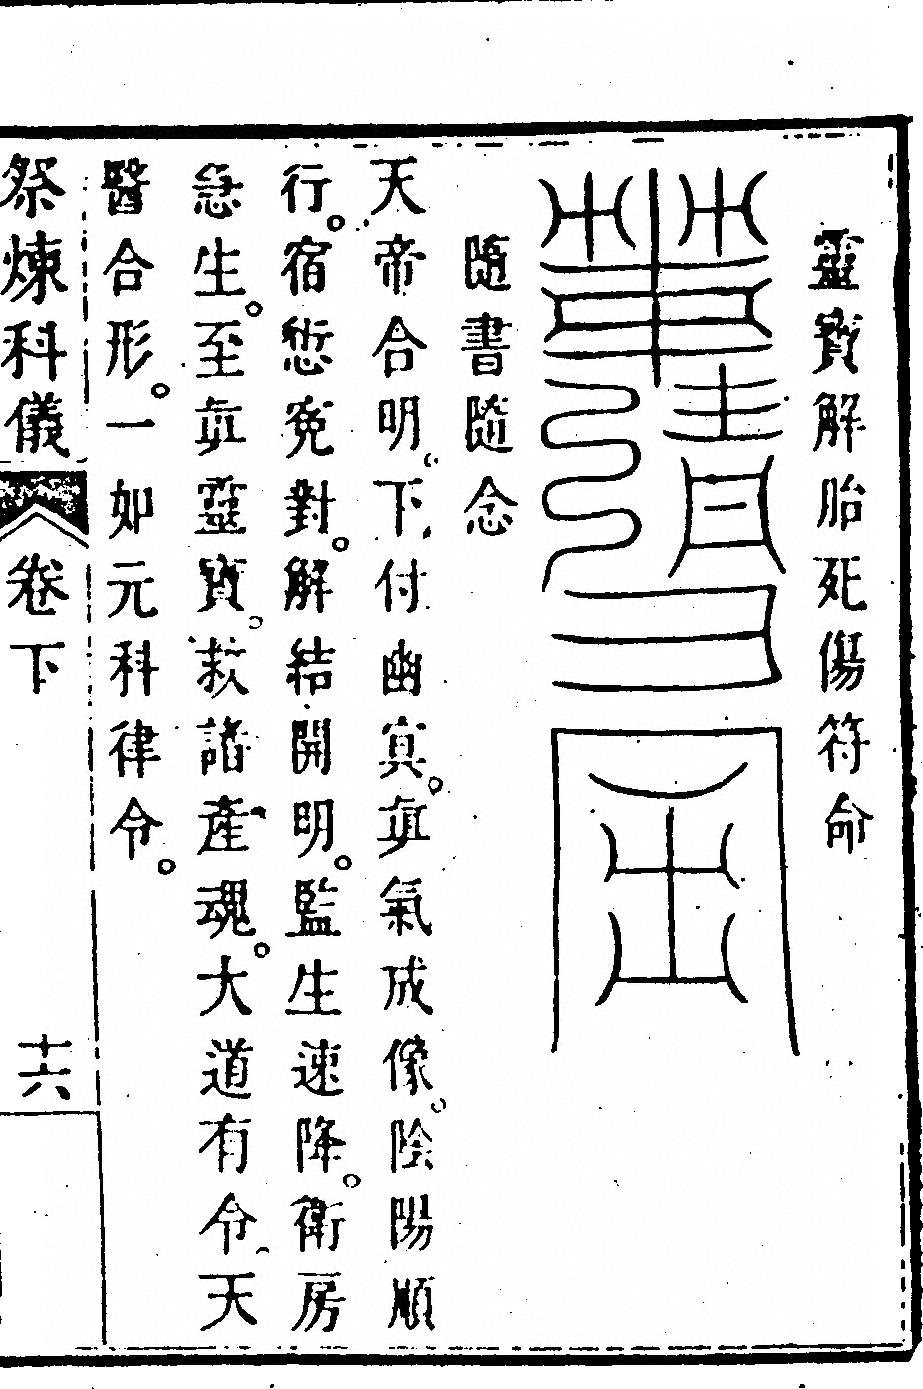 靈寶解胎死傷符命
隨書隨念
天帝合明。下付幽冥。眞氣成像。陰陽順
行。宿愆寃對。解結開明。監生速降。衛房
急生。至眞靈寶。救諸產魂。大道有令。天
醫合形。一如元科律令。
祭煉科儀 卷下 十六